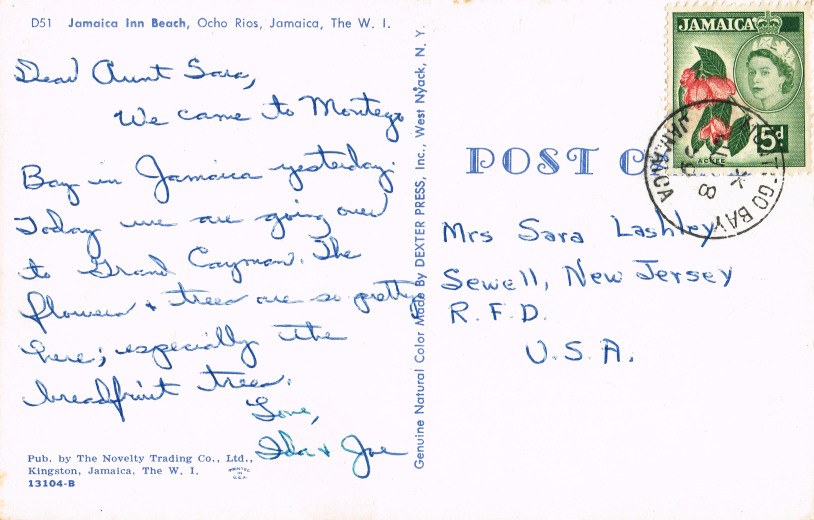 D51 Jamaica Inn Beach, Ocho Rios, Jamaica, The W. I.
Dear Aunt Sara,
We came to Montego
Bay in Jamaica yesterday.
Today we are going over
to Grand Cayman. The
flowers + trees are so pretty
here; especially the
breadfruit trees.
Love,
Ida + Joe
Pub. by The Novelty Trading Co., Ltd.,
Kingston, Jamaica, The W. I.
13104-B
PRINTED
IN
U.S.A.
Genuine Natural Color Made By DEXTER PRESS, Inc., West Nyack, N. Y.
POST C
JAMAICA
ACKEE
5d
GO BAY
JAMAICA
Mrs Sara Lashley
Sewell, New Jersey
R. F. D.
U. S. A.